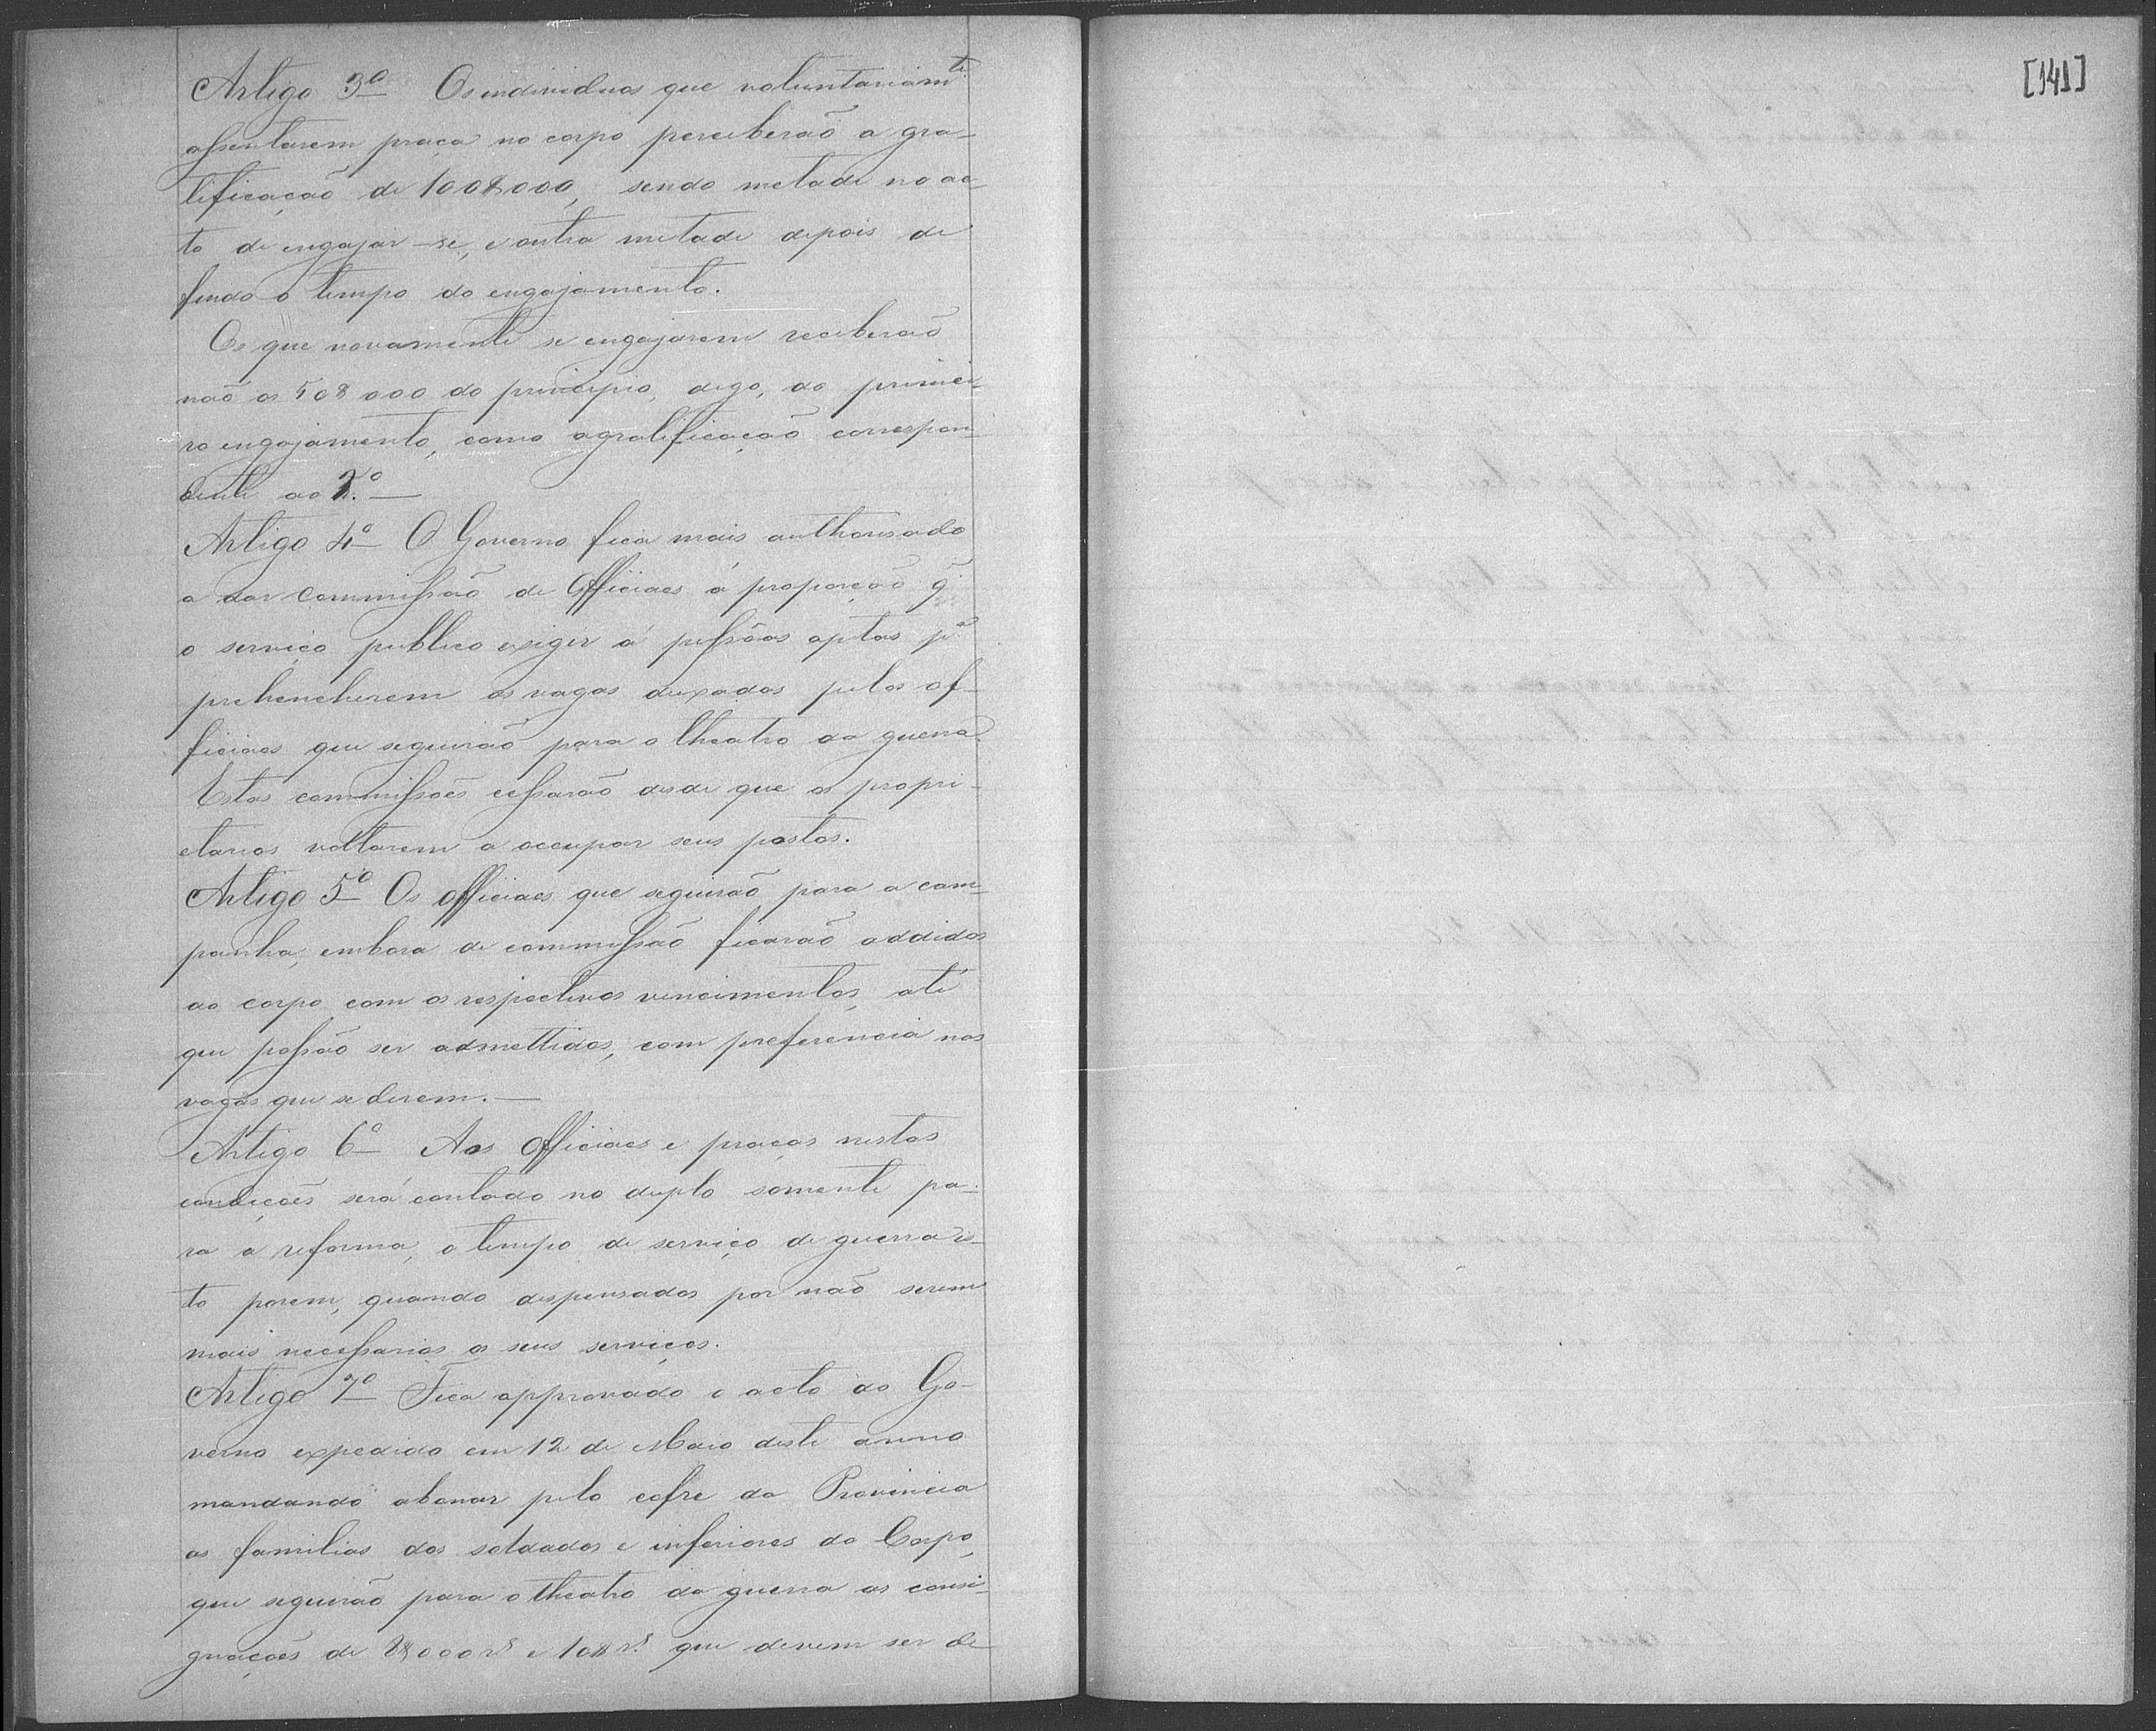 Artigo 3º Os individuos que voluntariamte
assentarem praça no corpo perceberão a gra-
tificação de 100$000, sendo metade no ac-
to de engajar-se, e outra metade depois de
findo o tempo do engajamento.
Os que novamente se engajarem receberão
não os 50$000 do principio, digo, do primei-
ro engajamento, como a gratificação correspon-
dente ao 2.º
Artigo 4º O Governo fica mais authorisado
a dar commissão de Officiaes á proporção q̃
o serviço publico exigir á pessôas aptas pª
prehencherem as vagas deixadas pelos of-
ficiaes que seguirão para o theatro da guerra.
Estas commissões cessarão desde que os propri-
etarios voltarem a occupar seus postos.
Artigo 5º Os officiaes que seguirão para a cam-
panha, embora de commissão ficarão addidos
ao corpo com os respectivos vencimentos, até
que possão ser admettidos, com preferencia nas
vagas que se derem.
Artigo 6º Aos Officiaes e praças nestas
condições será contado no duplo somente pa-
ra a reforma, o tempo de serviço de guerra is-
to porem, quando dispensados por não serem
mais necessarios os seus serviços.
Artigo 7º Fica approvado o acto do Go-
verno expedido em 12 de Maio deste anno
mandando abonar pelo cofre da Provincia
as familias dos soldados e inferiores do Corpo,
que seguirão para o theatro da guerra as consi-
gnações de 8$000 rs e 10$ rs. que devem ser de-
[141]